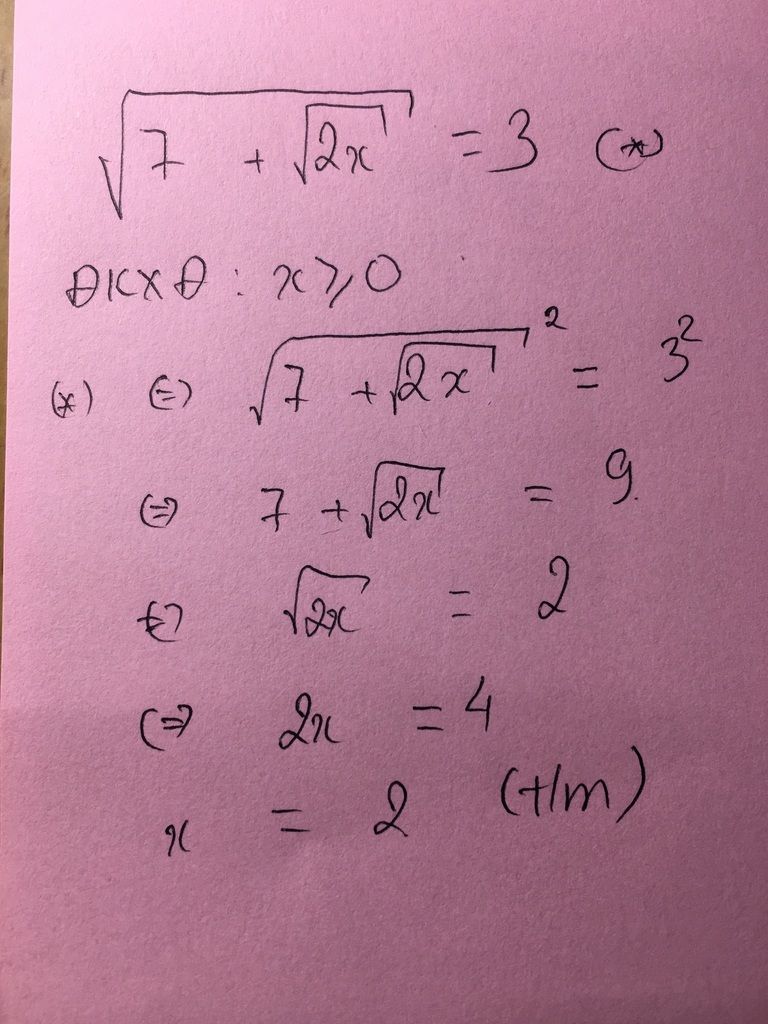 √(7 + √(2x)) = 3 (*)
ĐKXĐ : x ≥ 0
(*) (=) √(7 + √(2x))² = 3²
(=) 7 + √(2x) = 9
(=) √(2x) = 2
(=) 2x = 4
x = 2 (t/m)